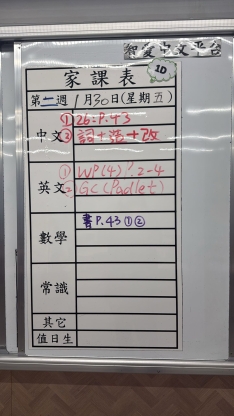 家課表
1D
第二週 1月30日(星期五)
中文 ① 26: P.43
② 詞+造+改
英文 ① WP(4) P.2-4
② GC (Padlet)
數學 書 P.43 ①②
常識
其它
值日生